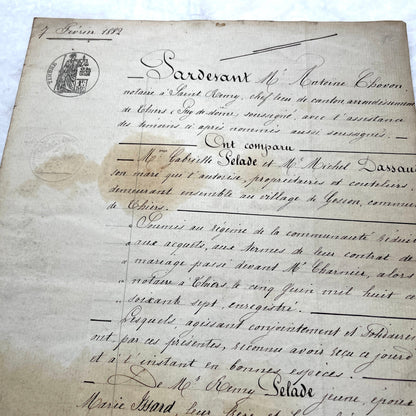 7 Février 1882
TIMBRE
Pardevant Me Antoine Chovon
notaire à Saint Remy, chef lieu de canton arrondissement
de Thiers, Puy de dome, soussigné, avec l'assistance
des témoins ci après nommés aussi soussignés.
Ont comparu
Mme Gabrielle Selade et Mr Michel Dassaud
son mari qui l'autorise, propriétaires et couteliers
demeurant ensemble au village de commune
de Thiers.
Soumis au régime de la communauté réduite
aux acquets, aux termes de leur contrat de
mariage passé devant Me Charnier, alors
notaire à Thiers, le cinq Juin mil huit
soixante sept, enregistré.
Lesquels, agissant conjointement et solidaire
ont, par ces présentes, reconnu avoir reçu ce jour
et à l'instant en bonnes espèces.
De Mr Remy Selade jeune, époux
Marie Issard leur frère et